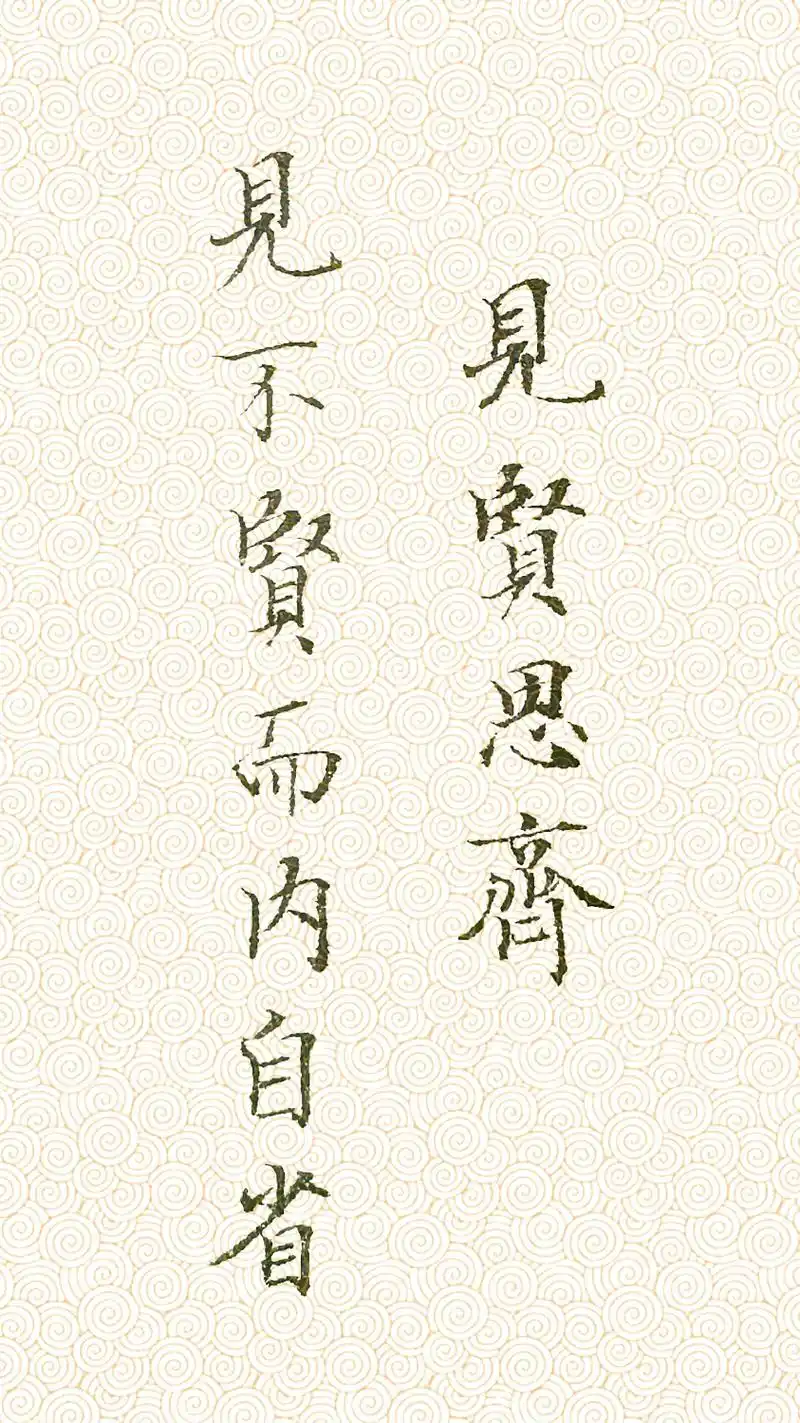 見賢思齊
見不賢而内自省